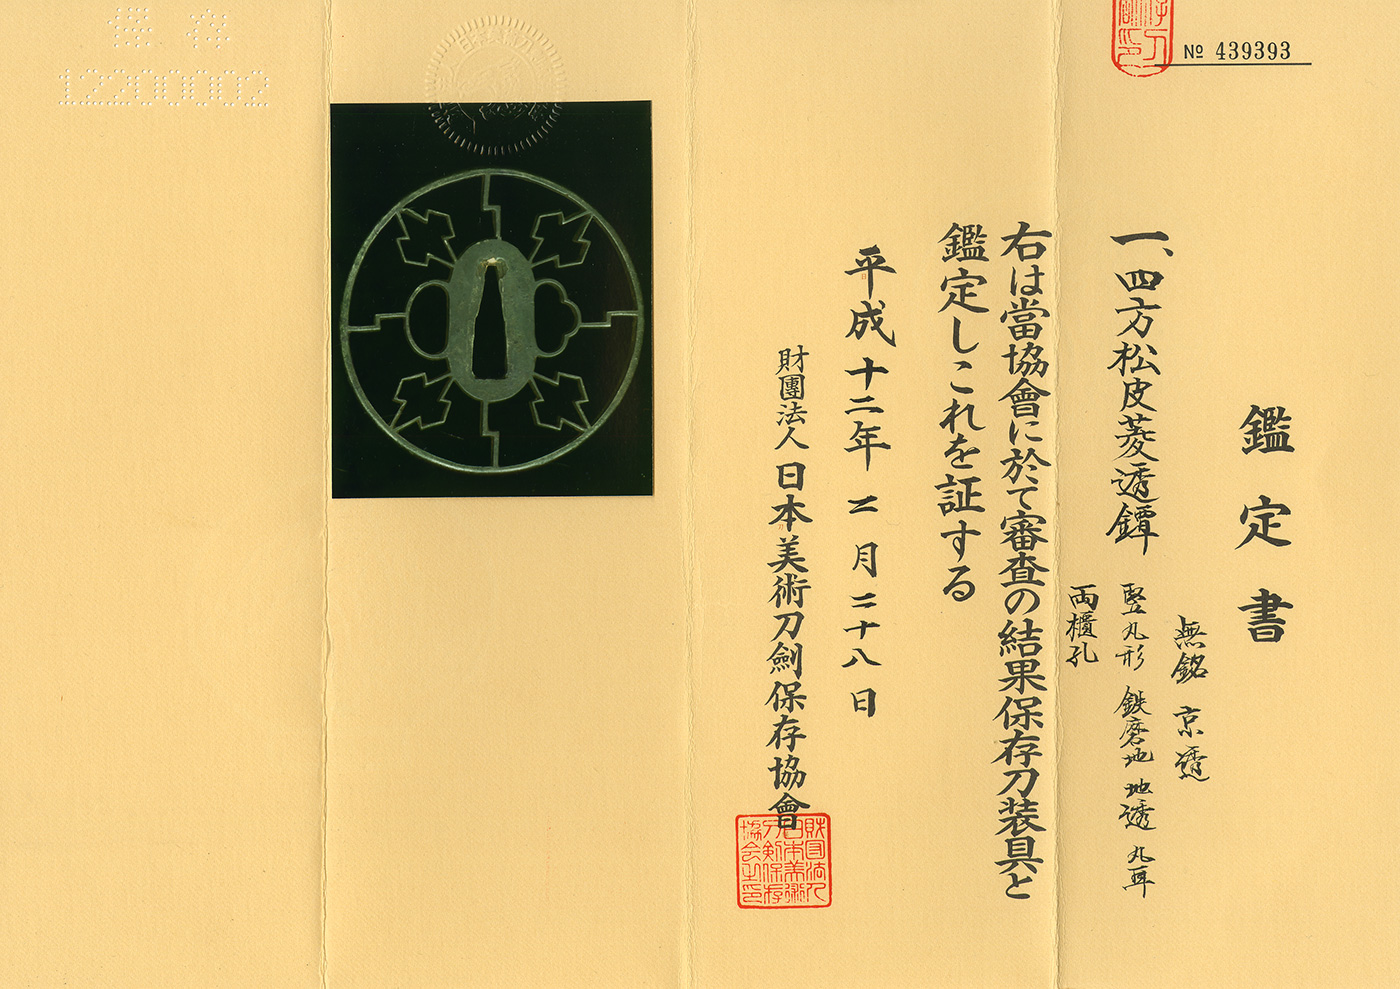 № 439393
鑑定書
一、四方松皮菱透鐔
無銘 京透
竪丸形 鉄磨地 地透 丸耳
両櫃孔
右は當協會に於て審査の結果保存刀装具と
鑑定しこれを証する
平成十二年二月二十八日
財團法人 日本美術刀劍保存協會
財団法人
日本美術
刀剣保存
協会之印
保存
12200002